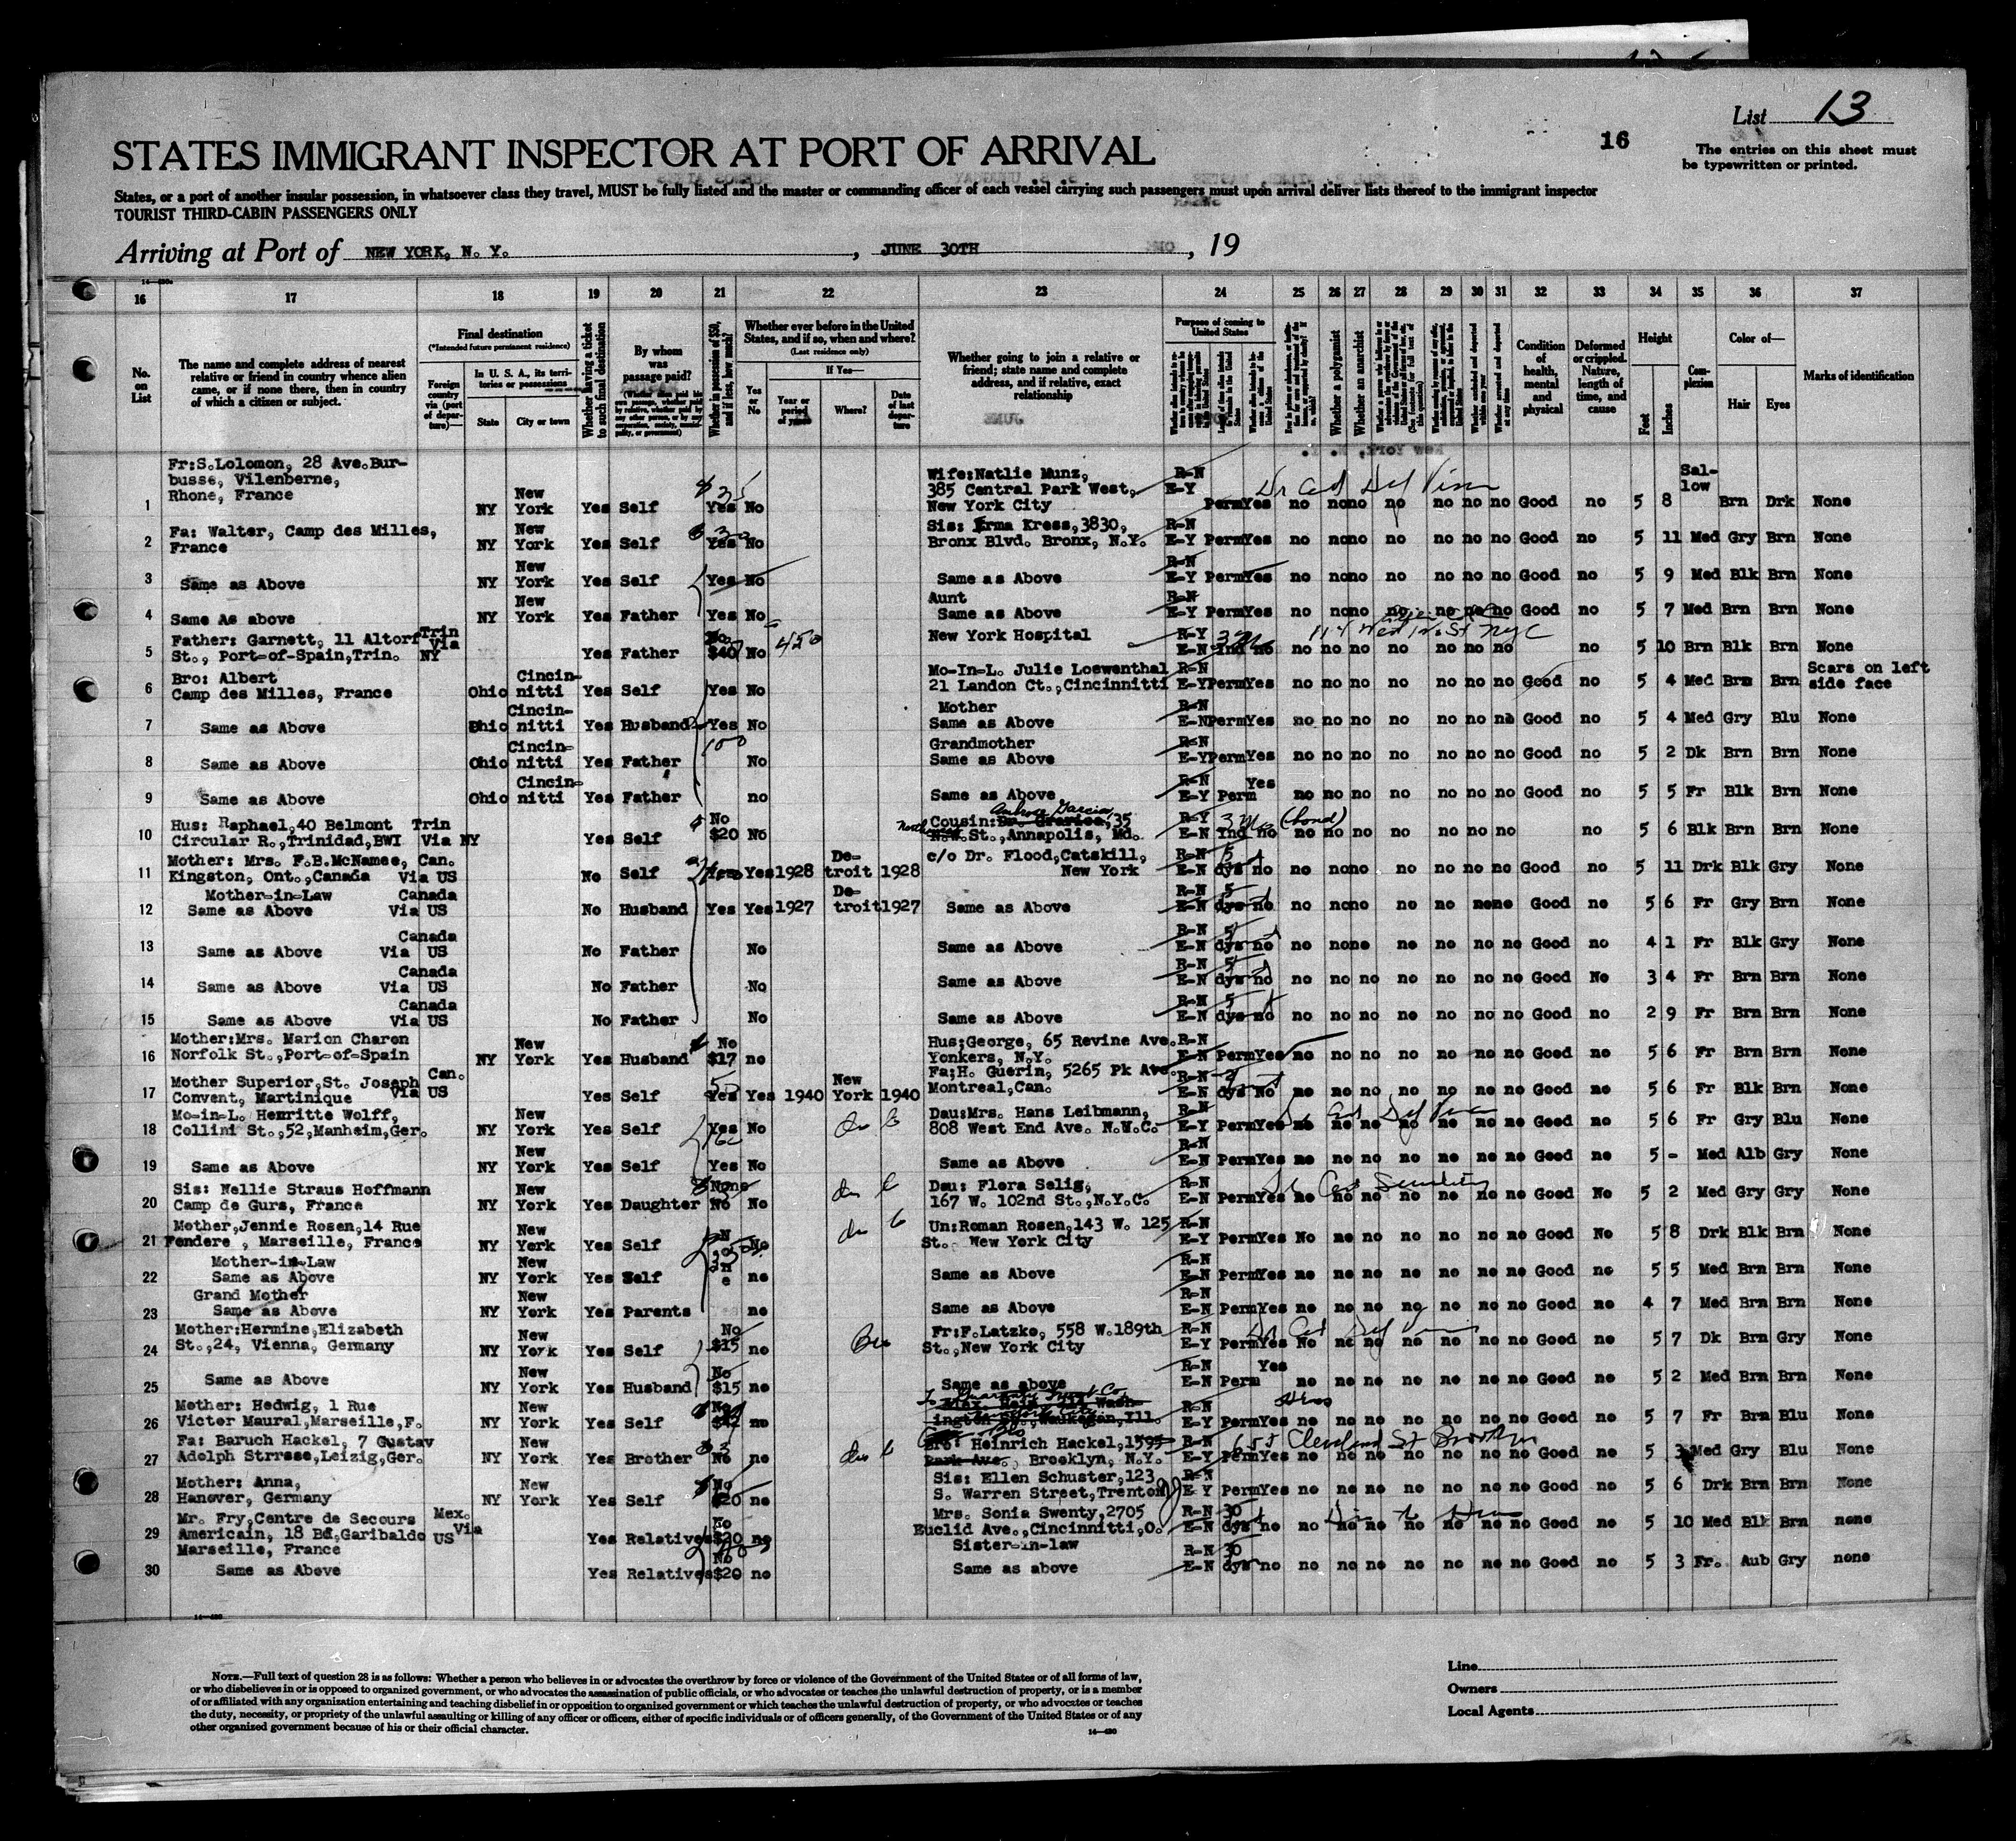 List 13
16
The entries on this sheet must
be typewritten or printed.
STATES IMMIGRANT INSPECTOR AT PORT OF ARRIVAL
States, or a port of another insular possession, in whatsoever class they travel, MUST be fully listed and the master or commanding officer of each vessel carrying such passengers must upon arrival deliver lists thereof to the immigrant inspector
TOURIST THIRD-CABIN PASSENGERS ONLY
Arriving at Port of NEW YORK, N. Y. , JUNE 30TH , 19
16 17 18 19 20 21 22 23 24 25 26 27 28 29 30 31 32 33 34 35 36 37
No. on List
The name and complete address of nearest relative or friend in country whence alien came, or if none there, then in country of which a citizen or subject.
Final destination
(*Intended future permanent residence)
Foreign country via (port of departure)—
In U. S. A., its territories or possessions
State
City or town
Whether having a ticket to such final destination
By whom was passage paid?
Whether in possession of $50, and if less, how much?
Whether ever before in the United States, and if so, when and where?
(Last residence only)
Yes or No
If Yes—
Year or period of years
Where?
Date of last departure
Whether going to join a relative or friend; state name and complete address, and if relative, exact relationship
Purpose of coming to United States
Whether a polygamist
Whether an anarchist
Condition of health, mental and physical
Deformed or crippled. Nature, length of time, and cause
Height
Feet
Inches
Complexion
Color of—
Hair
Eyes
Marks of identification
1 Fr:S.Lolomon, 28 Ave.Bur-
busse, Vilenberne,
Rhone, France NY New York Yes Self $35 Yes No Wife:Natlie Munz,
385 Central Park West,
New York City R-N E-Y Perm Yes no no no no no no no Good no 5 8 Sal-low Brn Drk None
2 Fa: Walter, Camp des Milles,
France NY New York Yes Self Yes No Sis: Erma Kress,3830,
Bronx Blvd. Bronx, N.Y. R-N E-Y Perm Yes no no no no no no no Good no 5 11 Med Gry Brn None
3 Same as Above NY New York Yes Self Yes No Same as Above R-N E-Y Perm Yes no no no no no no no Good no 5 9 Med Blk Brn None
4 Same As above NY New York Yes Father Yes No Aunt
Same as Above R-N E-Y Perm Yes no no no no no no no Good no 5 7 Med Brn Brn None
5 Father: Garnett, 11 Altorf
St., Port-of-Spain,Trin. Trin Via NY Yes Father No $40 No New York Hospital R-Y E-N Ind no no no no no no no no no 5 10 Brn Blk Brn None
6 Bro: Albert
Camp des Milles, France Ohio Cincin-nitti Yes Self Yes No Mo-In-L. Julie Loewenthal
21 Landon Ct.,Cincinnitti R-N E-Y Perm Yes no no no no no no no Good no 5 4 Med Brn Brn Scars on left side face
7 Same as Above Ohio Cincin-nitti Yes Husband Yes No Mother
Same as Above R-N E-N Perm Yes no no no no no no no Good no 5 4 Med Gry Blu None
8 Same as Above Ohio Cincin-nitti Yes Father 100 No Grandmother
Same as Above R-N E-Y Perm Yes no no no no no no no Good no 5 2 Dk Brn Brn None
9 Same as Above Ohio Cincin-nitti Yes Father no Same as Above R-N E-Y Perm Yes no no no no no no no Good no 5 5 Fr Blk Brn None
10 Hus: Raphael,40 Belmont
Circular R.,Trinidad,BWI Trin Via NY Yes Self No $20 No Cousin: 35
St.,Annapolis, Md. R-Y E-N Ind no (bond) no no no no no no no no 5 6 Blk Brn Brn None
11 Mother: Mrs. F.B.McNamee,
Kingston, Ont.,Canada Can. Via US No Self Yes Yes 1928 De-troit 1928 c/o Dr. Flood,Catskill,
New York R-N E-N 5 dys no no no no no no no no Good no 5 11 Drk Blk Gry None
12 Mother-in-Law
Same as Above Canada Via US No Husband Yes Yes 1927 De-troit 1927 Same as Above R-N E-N 5 dys no no no no no no no no Good no 5 6 Fr Gry Brn None
13 Same as Above Canada Via US No Father No Same as Above R-N E-N 5 dys no no no no no no no no Good no 4 1 Fr Blk Gry None
14 Same as Above Canada Via US No Father No Same as Above R-N E-N 5 dys no no no no no no no no Good No 3 4 Fr Brn Brn None
15 Same as Above Canada Via US No Father No Same as Above R-N E-N 5 dys no no no no no no no no Good no 2 9 Fr Brn Brn None
16 Mother:Mrs. Marion Charon
Norfolk St.,Port-of-Spain NY New York Yes Husband No $17 no Hus;George, 65 Revine Ave.
Yonkers, N.Y. R-N E-N Perm Yes no no no no no no no Good no 5 6 Fr Brn Brn None
17 Mother Superior,St. Joseph
Convent, Martinique Can. Via US Yes Self Yes Yes 1940 New York 1940 Fa;H. Guerin, 5265 Pk Ave.
Montreal,Can. R-N E-N dys No no no no no no no no Good no 5 6 Fr Blk Brn None
18 Mo-in-L. Henritte Wolff,
Collini St.,52,Manheim,Ger. NY New York Yes Self Yes No Dau:Mrs. Hans Leibmann,
808 West End Ave. N.W.C. R-N E-Y Perm Yes no no no no no no no Good no 5 6 Fr Gry Blu None
19 Same as Above NY New York Yes Self Yes No Same as Above R-N E-N Perm Yes no no no no no no no Good no 5 - Med Alb Gry None
20 Sis: Nellie Straus Hoffmann
Camp de Gurs, France NY New York Yes Daughter None No No Dau: Flora Selig,
167 W. 102nd St.,N.Y.C. R-N E-N Perm Yes no no no no no no no Good No 5 2 Med Gry Gry None
21 Mother,Jennie Rosen,14 Rue
Fendere , Marseille, France NY New York Yes Self No Un:Roman Rosen,143 W. 125
St. New York City R-N E-Y Perm Yes No no no no no no no Good No 5 8 Drk Blk Brn None
22 Mother-in-Law
Same as Above NY New York Yes Self no Same as Above R-N E-N Perm Yes no no no no no no no Good no 5 5 Med Brn Brn None
23 Grand Mother
Same as Above NY New York Yes Parents no Same as Above R-N E-N Perm Yes no no no no no no no Good no 4 7 Med Brn Brn None
24 Mother:Hermine,Elizabeth
St.,24, Vienna, Germany NY New York Yes Self No $15 no Fr:F.Latzko, 558 W.189th
St.,New York City R-N E-Y Perm Yes No no no no no no no Good no 5 7 Dk Brn Gry None
25 Same as Above NY New York Yes Husband No $15 no Same as above R-N E-N Perm Yes no no no no no no no Good no 5 2 Med Brn Brn None
26 Mother: Hedwig, 1 Rue
Victor Maural,Marseille,F. NY New York Yes Self no Waukegan,Ill. R-N E-Y Perm Yes no no no no no no no Good no 5 7 Fr Brn Blu None
27 Fa: Baruch Hackel, 7 Gustav
Adolph Strrsse,Leizig,Ger. NY New York Yes Brother No no Bro: Heinrich Hackel,1595
Park Ave., Brooklyn, N.Y. R-N E-Y Perm Yes 655 Cleveland St Brooklyn no no no no no no no Good no 5 3 Med Gry Blu None
28 Mother: Anna,
Hanover, Germany NY New York Yes Self No $20 no Sis: Ellen Schuster,123
S. Warren Street,Trenton R-N E-Y Perm Yes no no no no no no no Good no 5 6 Drk Brn Brn None
29 Mr. Fry,Centre de Secours
Americain, 18 Bd.Garibaldo
Marseille, France Mex. Via US Yes Relatives No $20 no Mrs. Sonia Swenty,2705
Euclid Ave.,Cincinnitti,O. R-N E-N 30 dys no no no no no no no no Good no 5 10 Med Blk Brn none
30 Same as Above Yes Relatives No $20 no Sister-in-law
Same as above R-N E-N 30 dys no no no no no no no no Good no 5 3 Fr. Aub Gry none
NOTE.—Full text of question 28 is as follows: Whether a person who believes in or advocates the overthrow by force or violence of the Government of the United States or of all forms of law,
or who disbelieves in or is opposed to organized government, or who advocates the assassination of public officials, or who advocates or teaches the unlawful destruction of property, or is a member
of or affiliated with any organization entertaining and teaching disbelief in or opposition to organized government or which teaches the unlawful destruction of property, or who advocates or teaches
the duty, necessity, or propriety of the unlawful assaulting or killing of any officer or officers, either of specific individuals or of officers generally, of the Government of the United States or of any
other organised government because of his or their official character.
14—490
Line
Owners
Local Agents